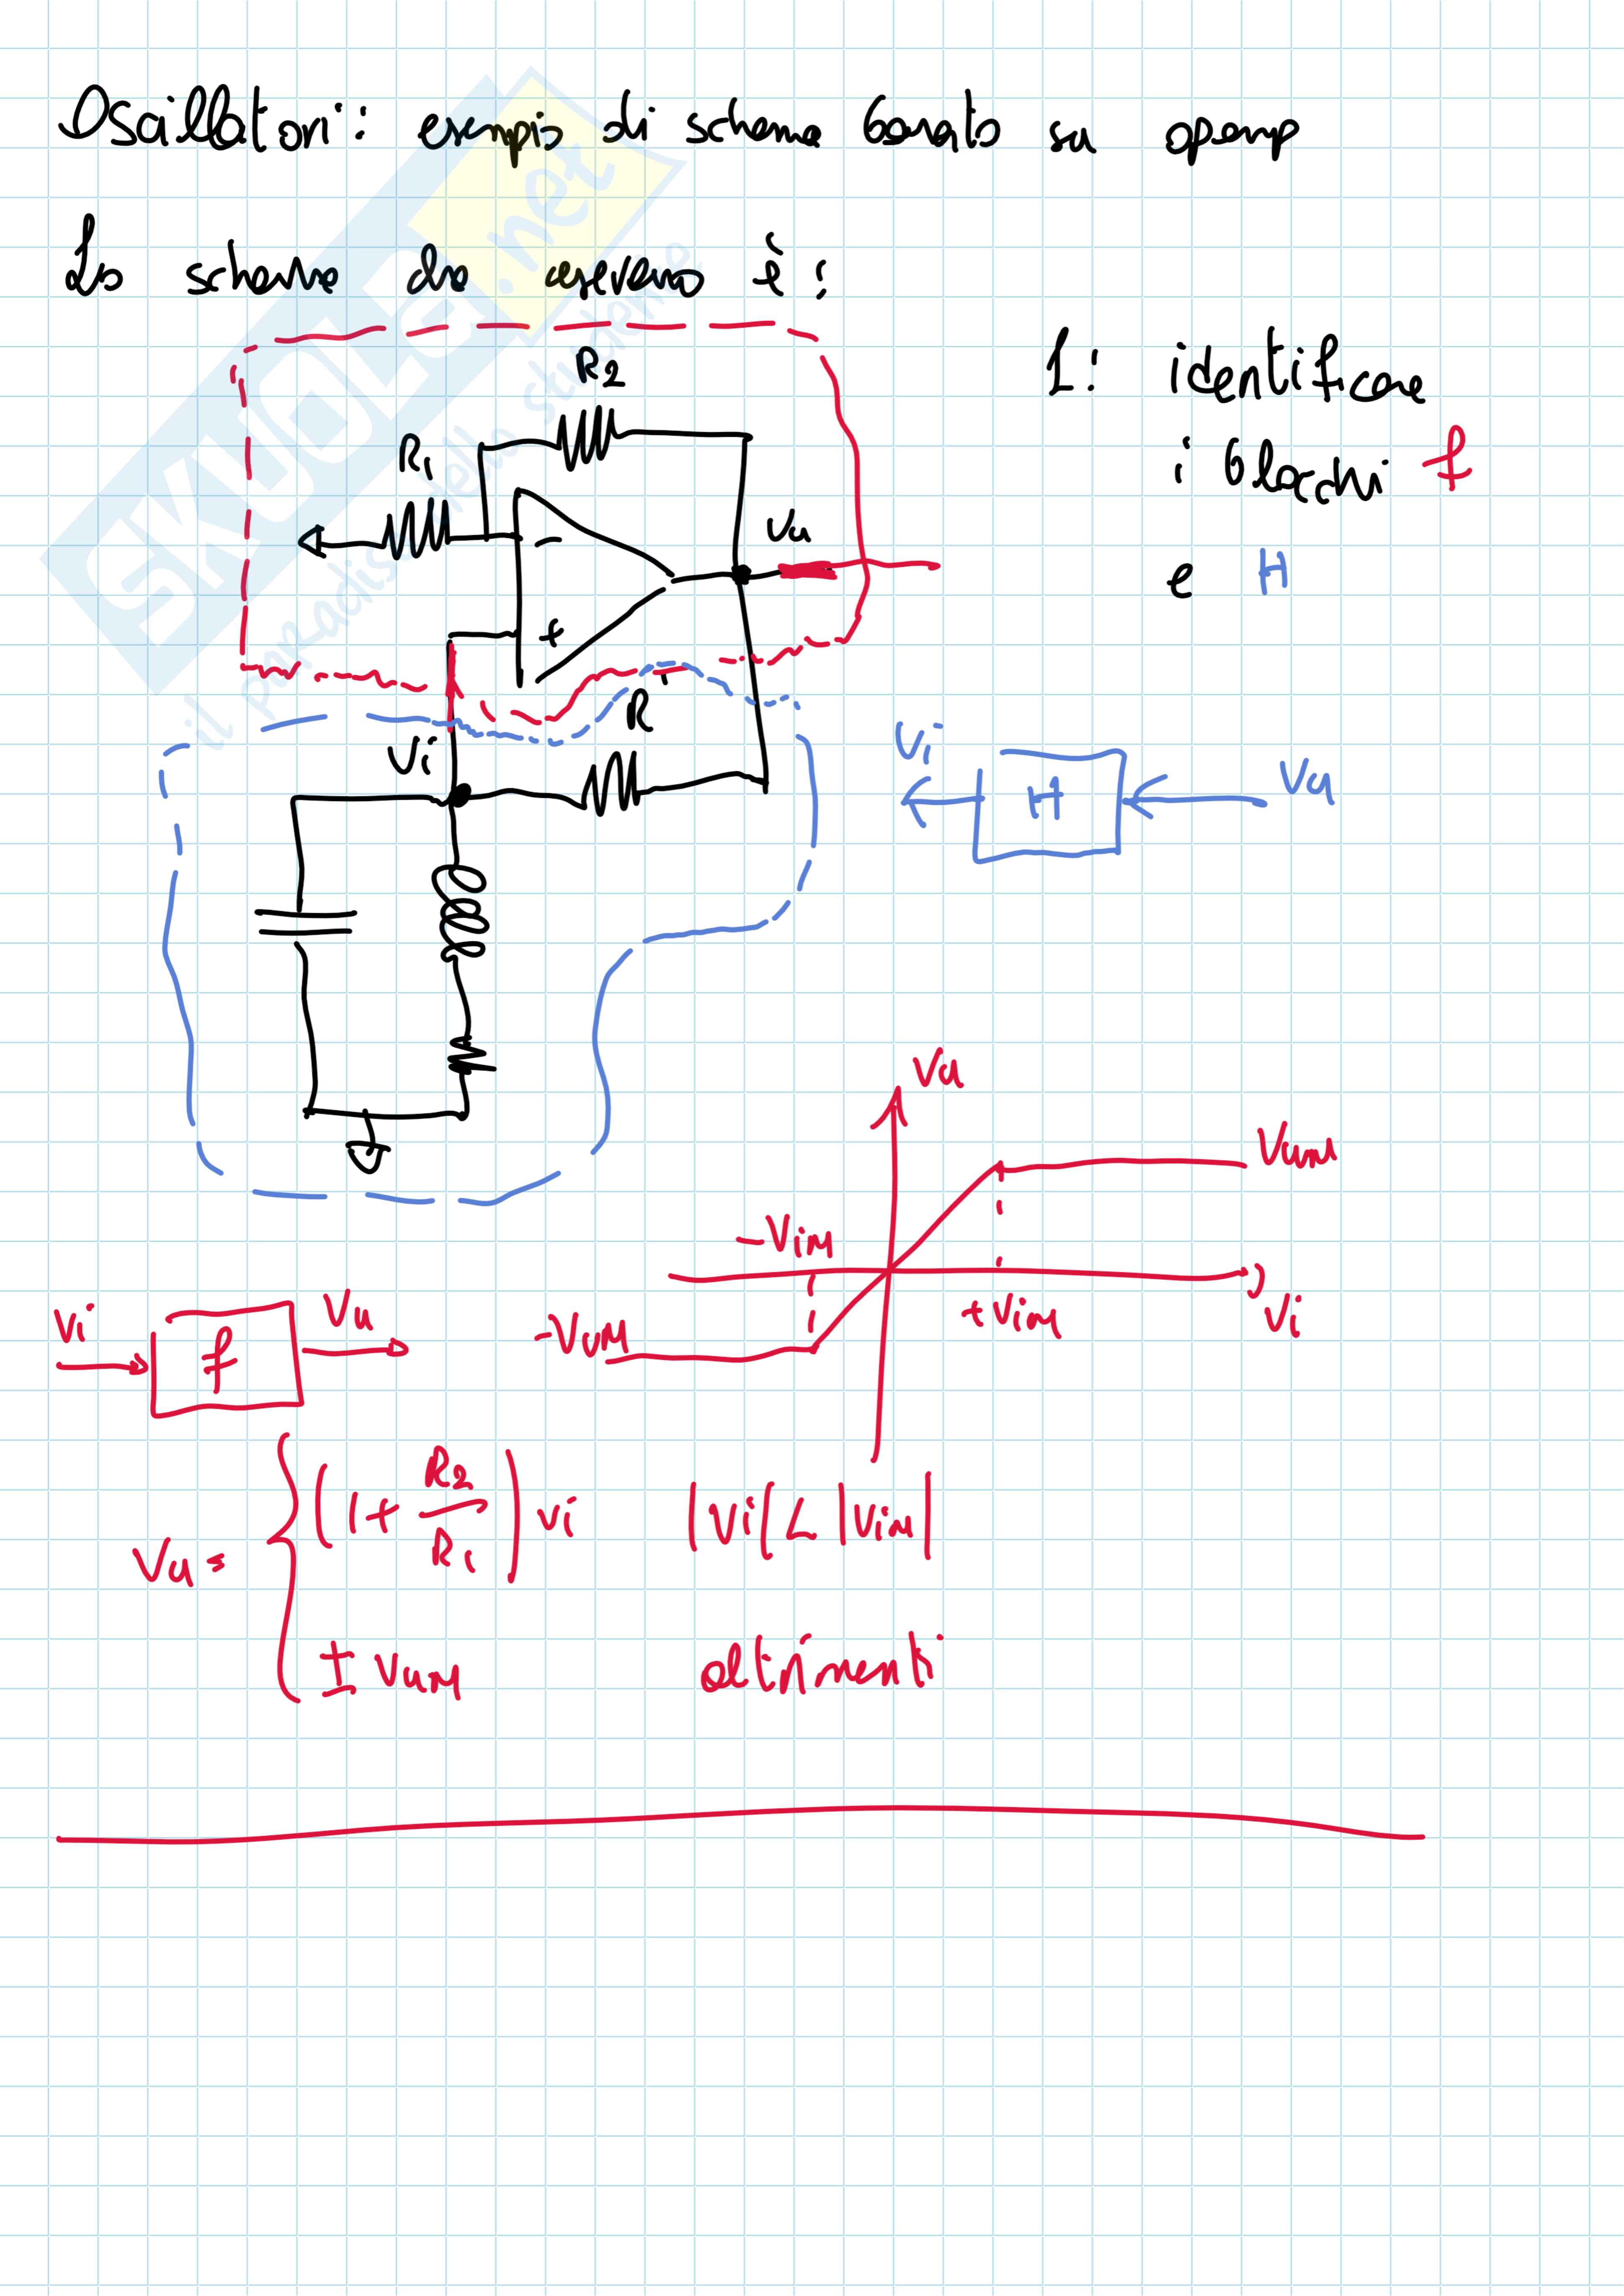 Oscillatori: esempio di schema basato su opamp
Lo schema che avevamo è:
1: identificare
i blocchi f
e H
R2
R1
Vu
-
+
R
Vi
Vi
H
Vu
Vu
VuM
-ViM
+ViM
Vi
-VuM
Vi
f
Vu
Vu = (1 + R2/R1) Vi |Vi| < |ViM|
± VuM altrimenti
SKUOLA.net
il paradiso dello studente